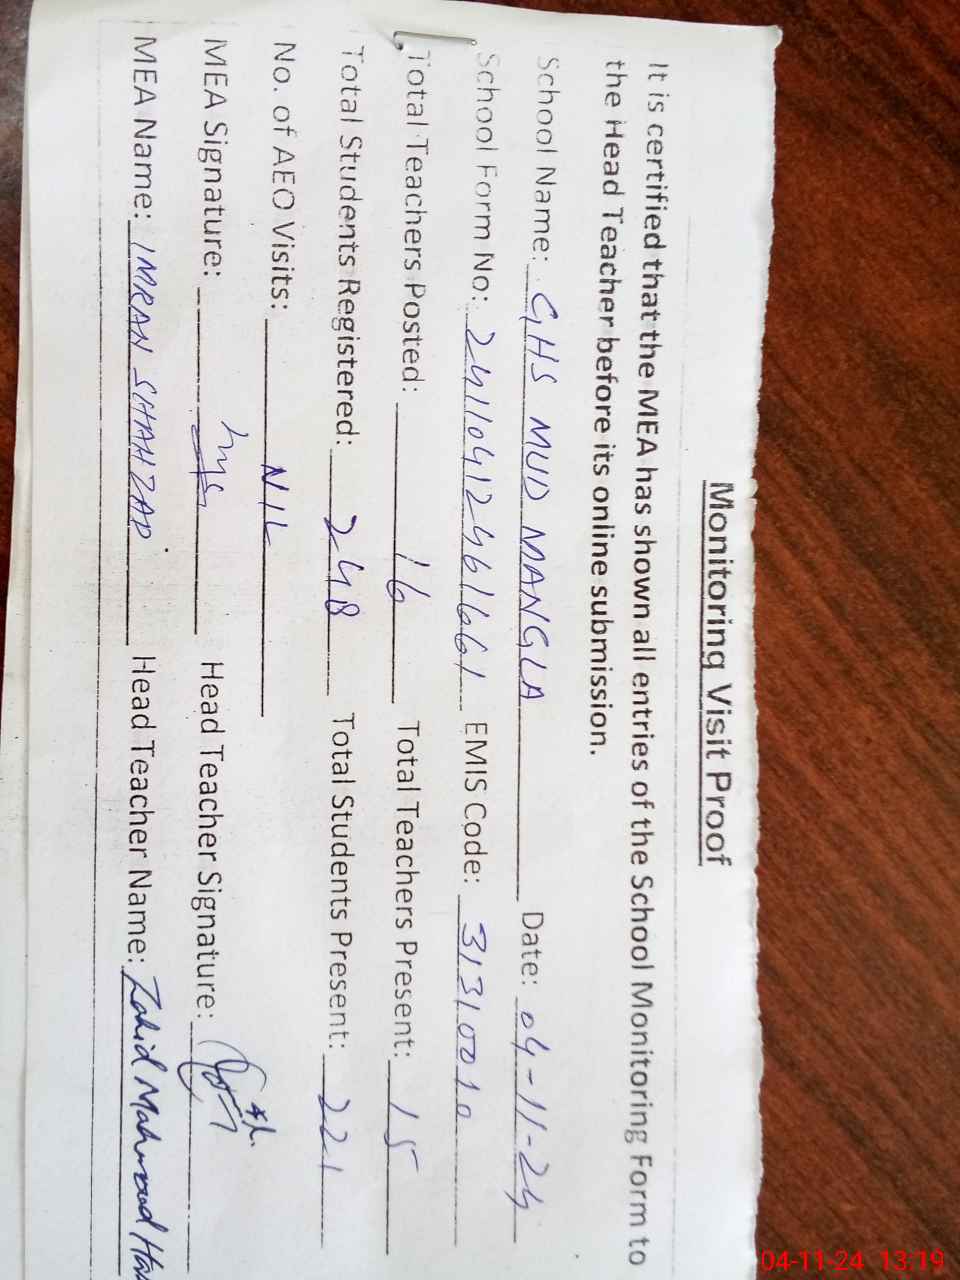 Monitoring Visit Proof
It is certified that the MEA has shown all entries of the School Monitoring Form to
the Head Teacher before its online submission.
School Name: GHS MUD MANGLA Date: 04-11-24
School Form No: 241104124616661 EMIS Code: 31310010
Total Teachers Posted: 16 Total Teachers Present: 15
Total Students Registered: 248 Total Students Present: 221
No. of AEO Visits: NIL
MEA Signature: Head Teacher Signature:
MEA Name: IMRAN SHAHZAD Head Teacher Name: Zahid Mahmood
04-11-24 13:19